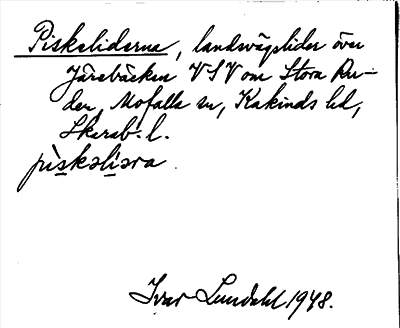 Piskeliderna, landsvägslider över
Järabäcken VSV om Stora Ru-
den, Mofalla sn, Kakinds hd,
Skarab. l.
pìskəliəra
Ivar Lundahl 1948.